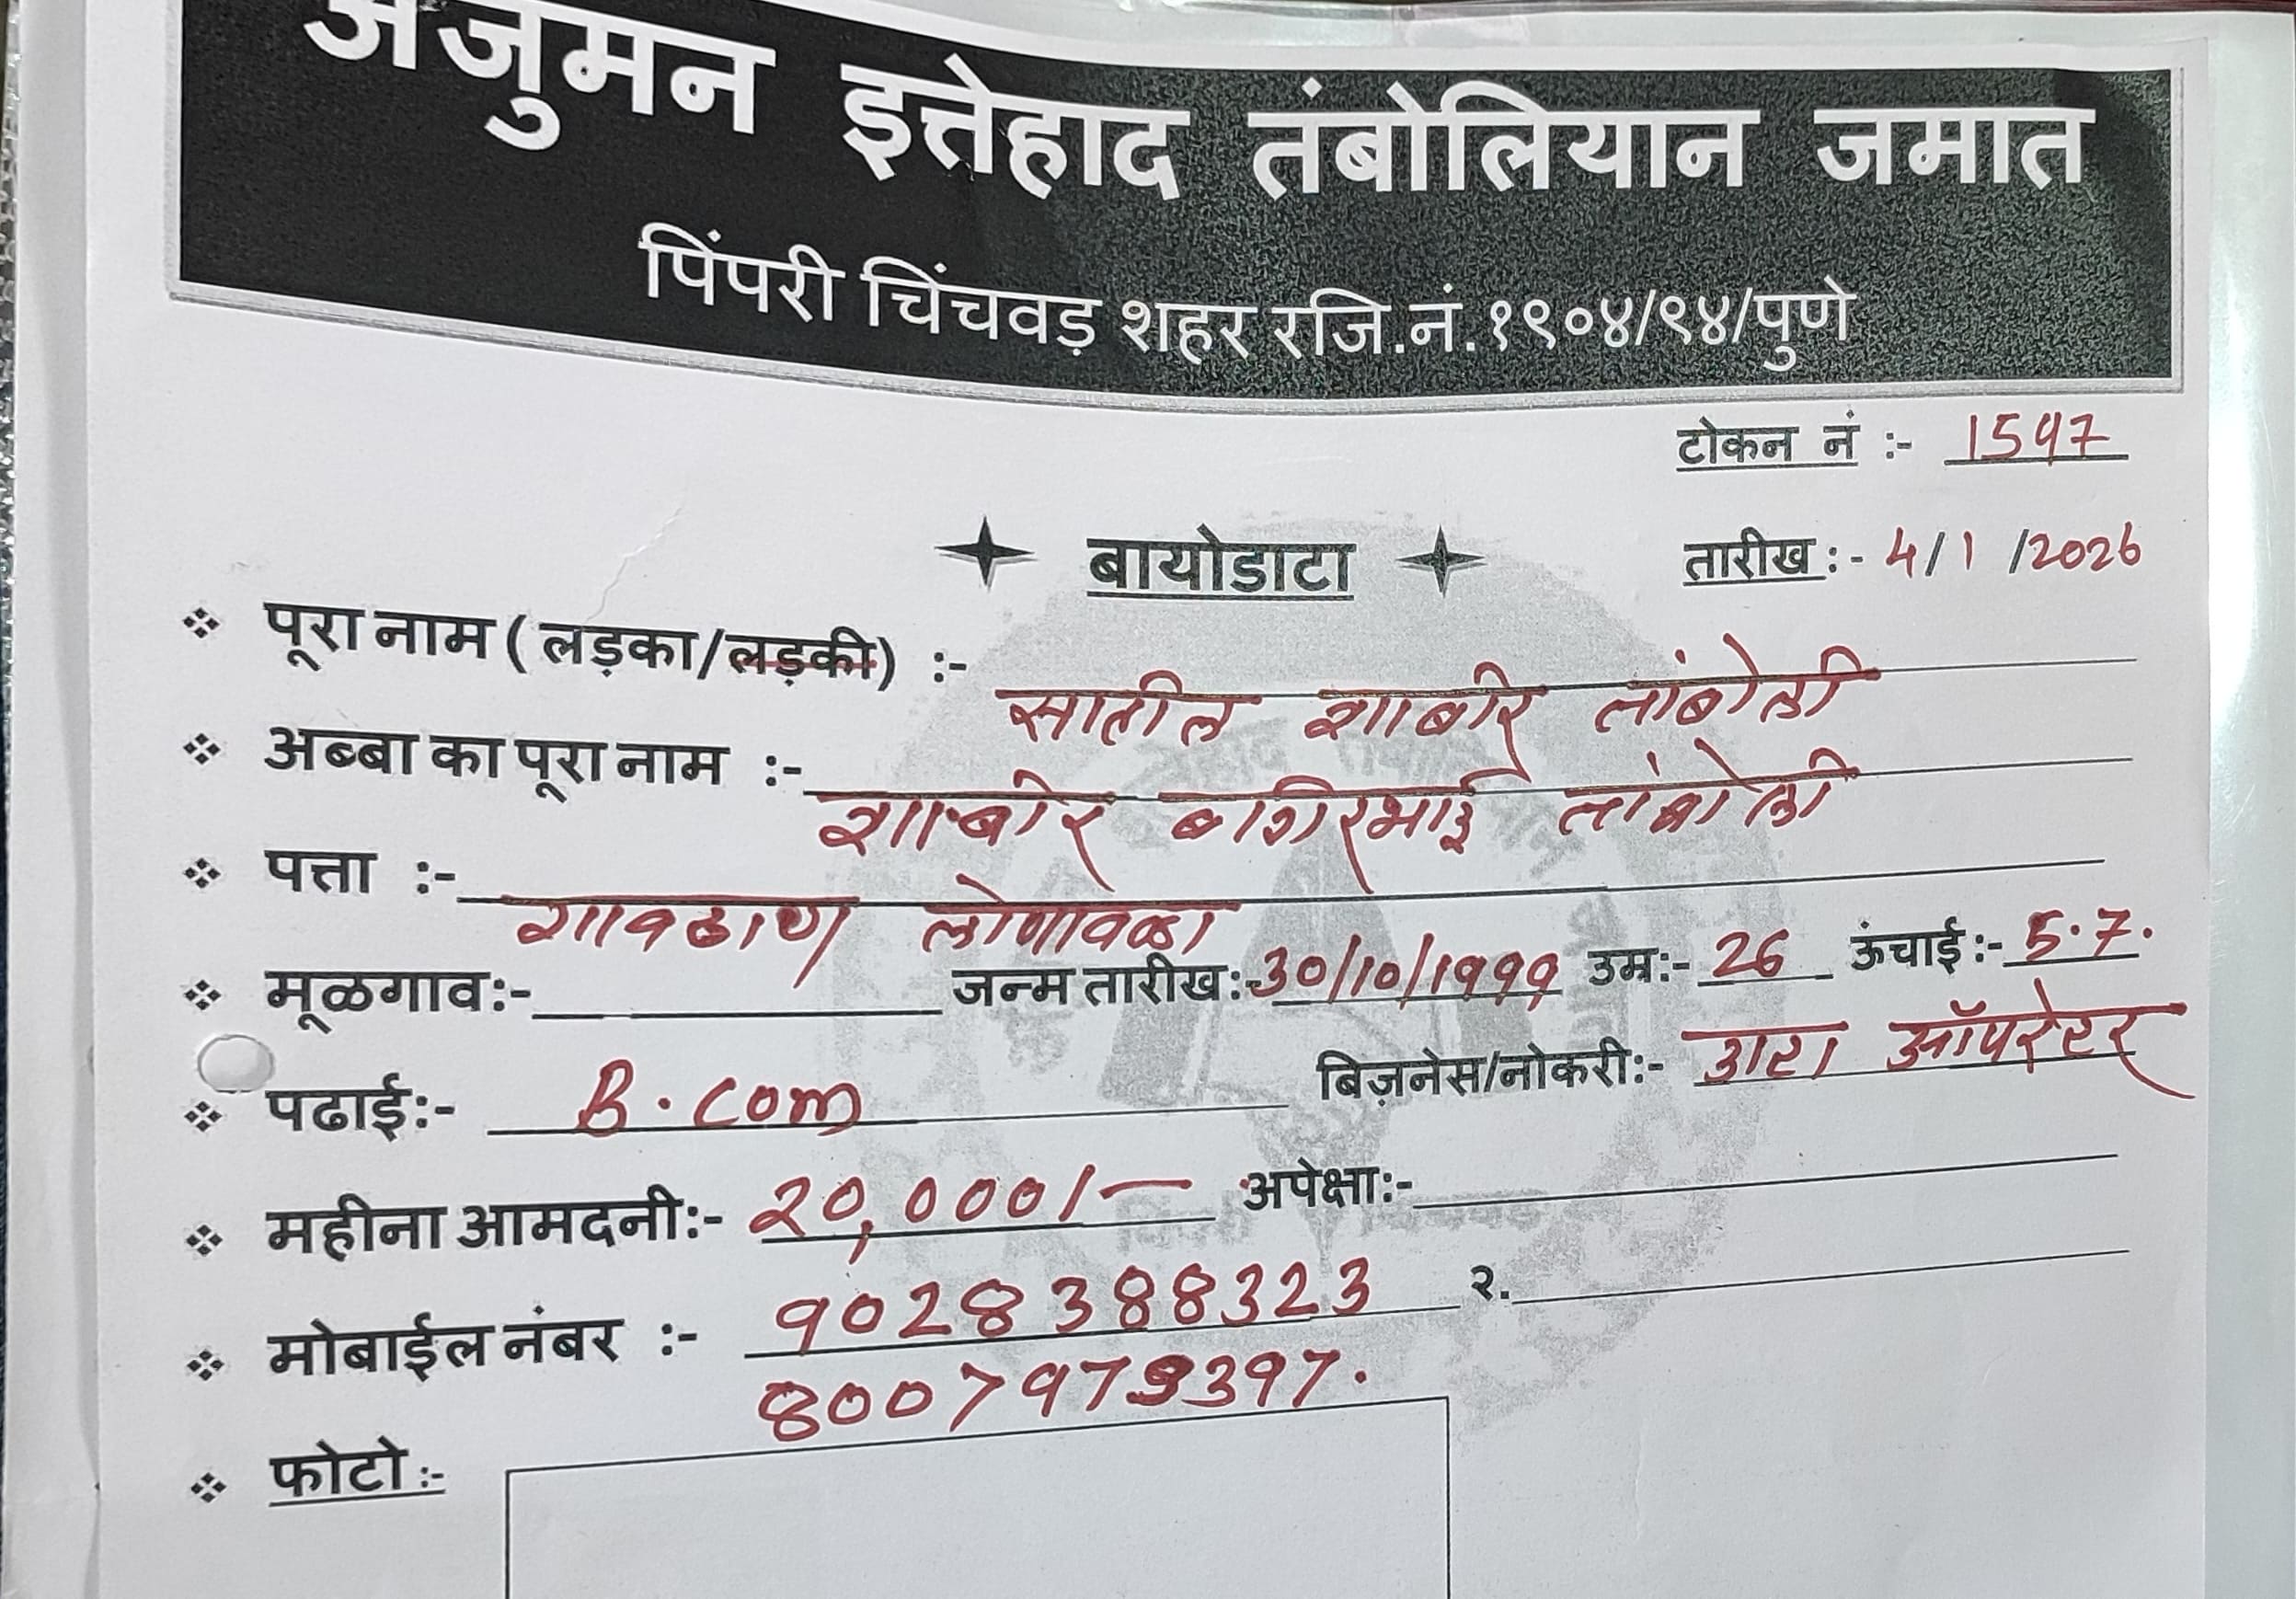 अंजुमन इत्तेहाद तंबोलियान जमात
पिंपरी चिंचवड़ शहर रजि.नं.१९०४/९४/पुणे
टोकन नं :- 1597
बायोडाटा
तारीख :- 4/1/2026
पूरा नाम ( लड़का/लड़की) :- साहील शाबीर तांबोली
अब्बा का पूरा नाम :- शाबीर बशिरभाई तांबोली
पत्ता :- गावठाण लोणावळा
मूळगाव:- जन्म तारीख:- 30/10/1999 उम्र:- 26 ऊंचाई:- 5.7.
पढाई:- B.com बिज़नेस/नोकरी:- डाटा ऑपरेटर
महीना आमदनी:- 20,000/- अपेक्षा:-
मोबाईल नंबर :- 9028388323 २.
8007979397.
फोटो :-